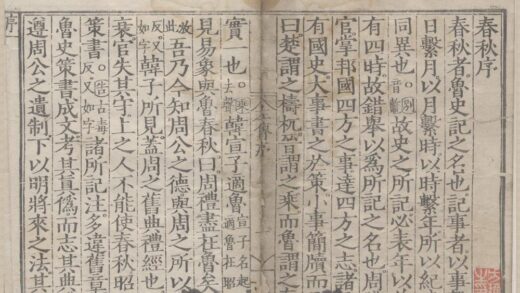 春秋序
春秋者魯史記之名也記事者以事
日繫月以月繫時以時繫年所以紀
同異也故史之所記必表年以
有四時故錯舉以爲所記之名也周
官掌邦國四方之事達四方之志諸
有國史大事書之於策小事簡牘而
曰楚謂之檮杌晉謂之乘而魯謂之
實一也乘去聲韓宣子適魯宣子名起適魯在昭
見易象與魯春秋曰周禮盡在魯矣
吾乃今知周公之德與周之所以
反又如字韓子所見蓋周之舊典禮經也
衰官失其守上之人不能使春秋昭
策書告古毒反又如字諸所記注多違舊章
魯史策書成文考其眞僞而志其典
遵周公之遺制下以明將來之法其
序